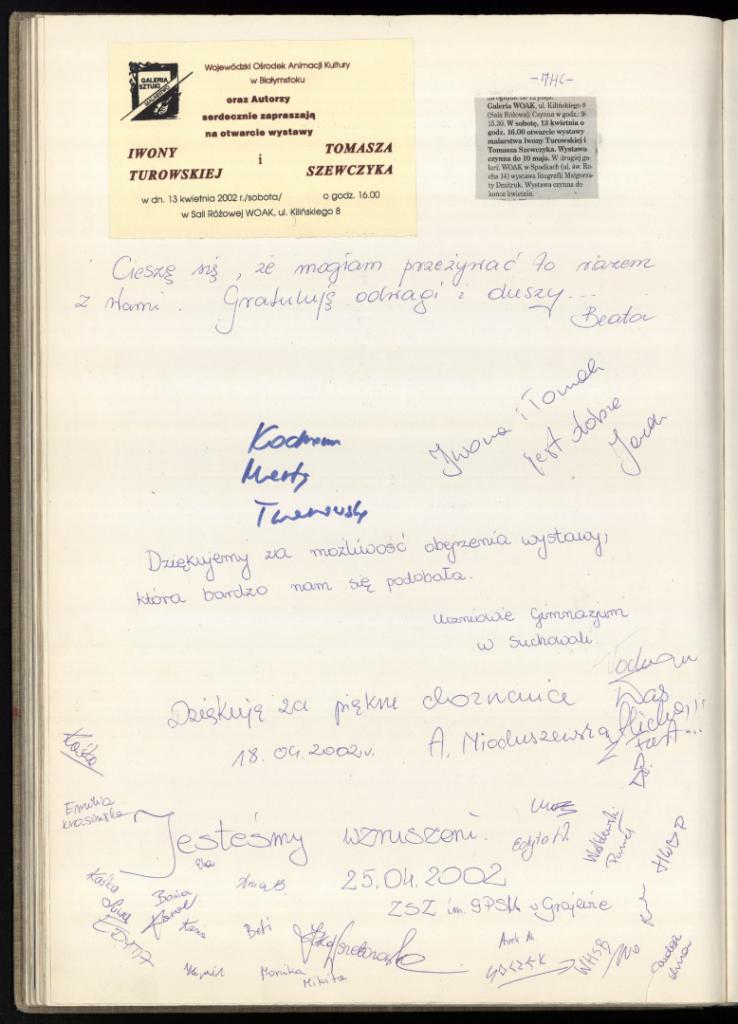 GALERIA
SZTUKI
MALARSTWO
Wojewódzki Ośrodek Animacji Kultury
w Białymstoku
oraz Autorzy
serdecznie zapraszają
na otwarcie wystawy
IWONY TUROWSKIEJ
i
TOMASZA SZEWCZYKA
w dn. 13 kwietnia 2002 r./sobota/ o godz. 16.00
w Sali Różowej WOAK, ul. Kilińskiego 8
Galeria WOAK, ul. Kilińskiego 8
(Sala Różowa). Czynna w godz.: 9-
15.30. W sobotę, 13 kwietnia o
godz. 16.00 otwarcie wystawy
malarstwa Iwony Turowskiej i
Tomasza Szewczyka. Wystawa
czynna do 10 maja. W drugiej ga-
lerii WOAK w Spodkach (ul. św. Ro-
cha 14) wystawa litografii Małgorza-
ty Dmitruk. Wystawa czynna do
końca kwietnia.
Cieszę się, że mogłam przeżywać to razem
z Wami. Gratuluję odwagi i duszy...
Beata
Iwona i Tomek
jest dobrze
Jarek
Kocham
Dziękujemy za możliwość obejrzenia wystawy,
która bardzo nam się podobała.
Uczniowie Gimnazjum
w Suchowoli.
Dziękuję za piękne doznania
18.04.2002r. A. Mioduszewska
Kocham
Was
Kaśka
Emilia
Jesteśmy wzruszeni.
Edyta
Paweł
HWDP
25.04.2002
ZSZ im. 9PSK w Grajewie
Kaśka
EDYTA
Basia
Karol
Ania B.
Beti
Monika
Nikita
WHSB